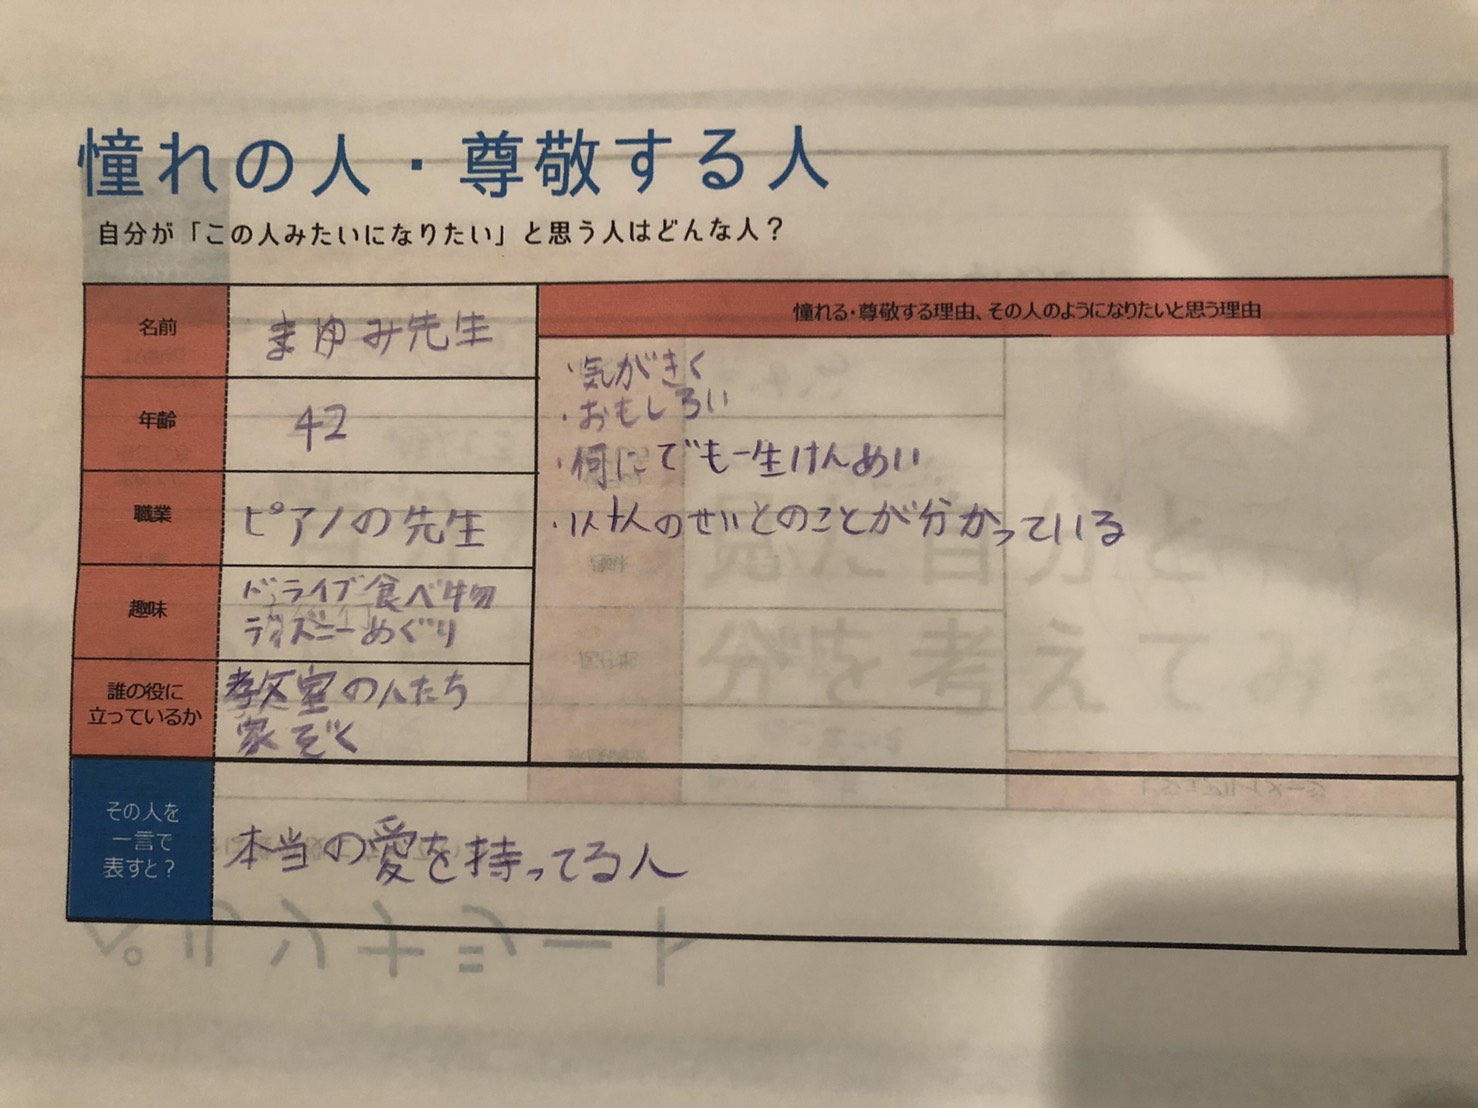 憧れの人・尊敬する人
自分が「この人みたいになりたい」と思う人はどんな人？
名前
まゆみ先生
年齢
42
職業
ピアノの先生
趣味
ドライブ食べ物
ディズニーめぐり
誰の役に
立っているか
教室の人たち
家ぞく
憧れる・尊敬する理由、その人のようになりたいと思う理由
・気がきく
・おもしろい
・何にでも一生けんめい
・1人1人のせいとのことが分かっている
その人を
一言で
表すと？
本当の愛を持ってる人